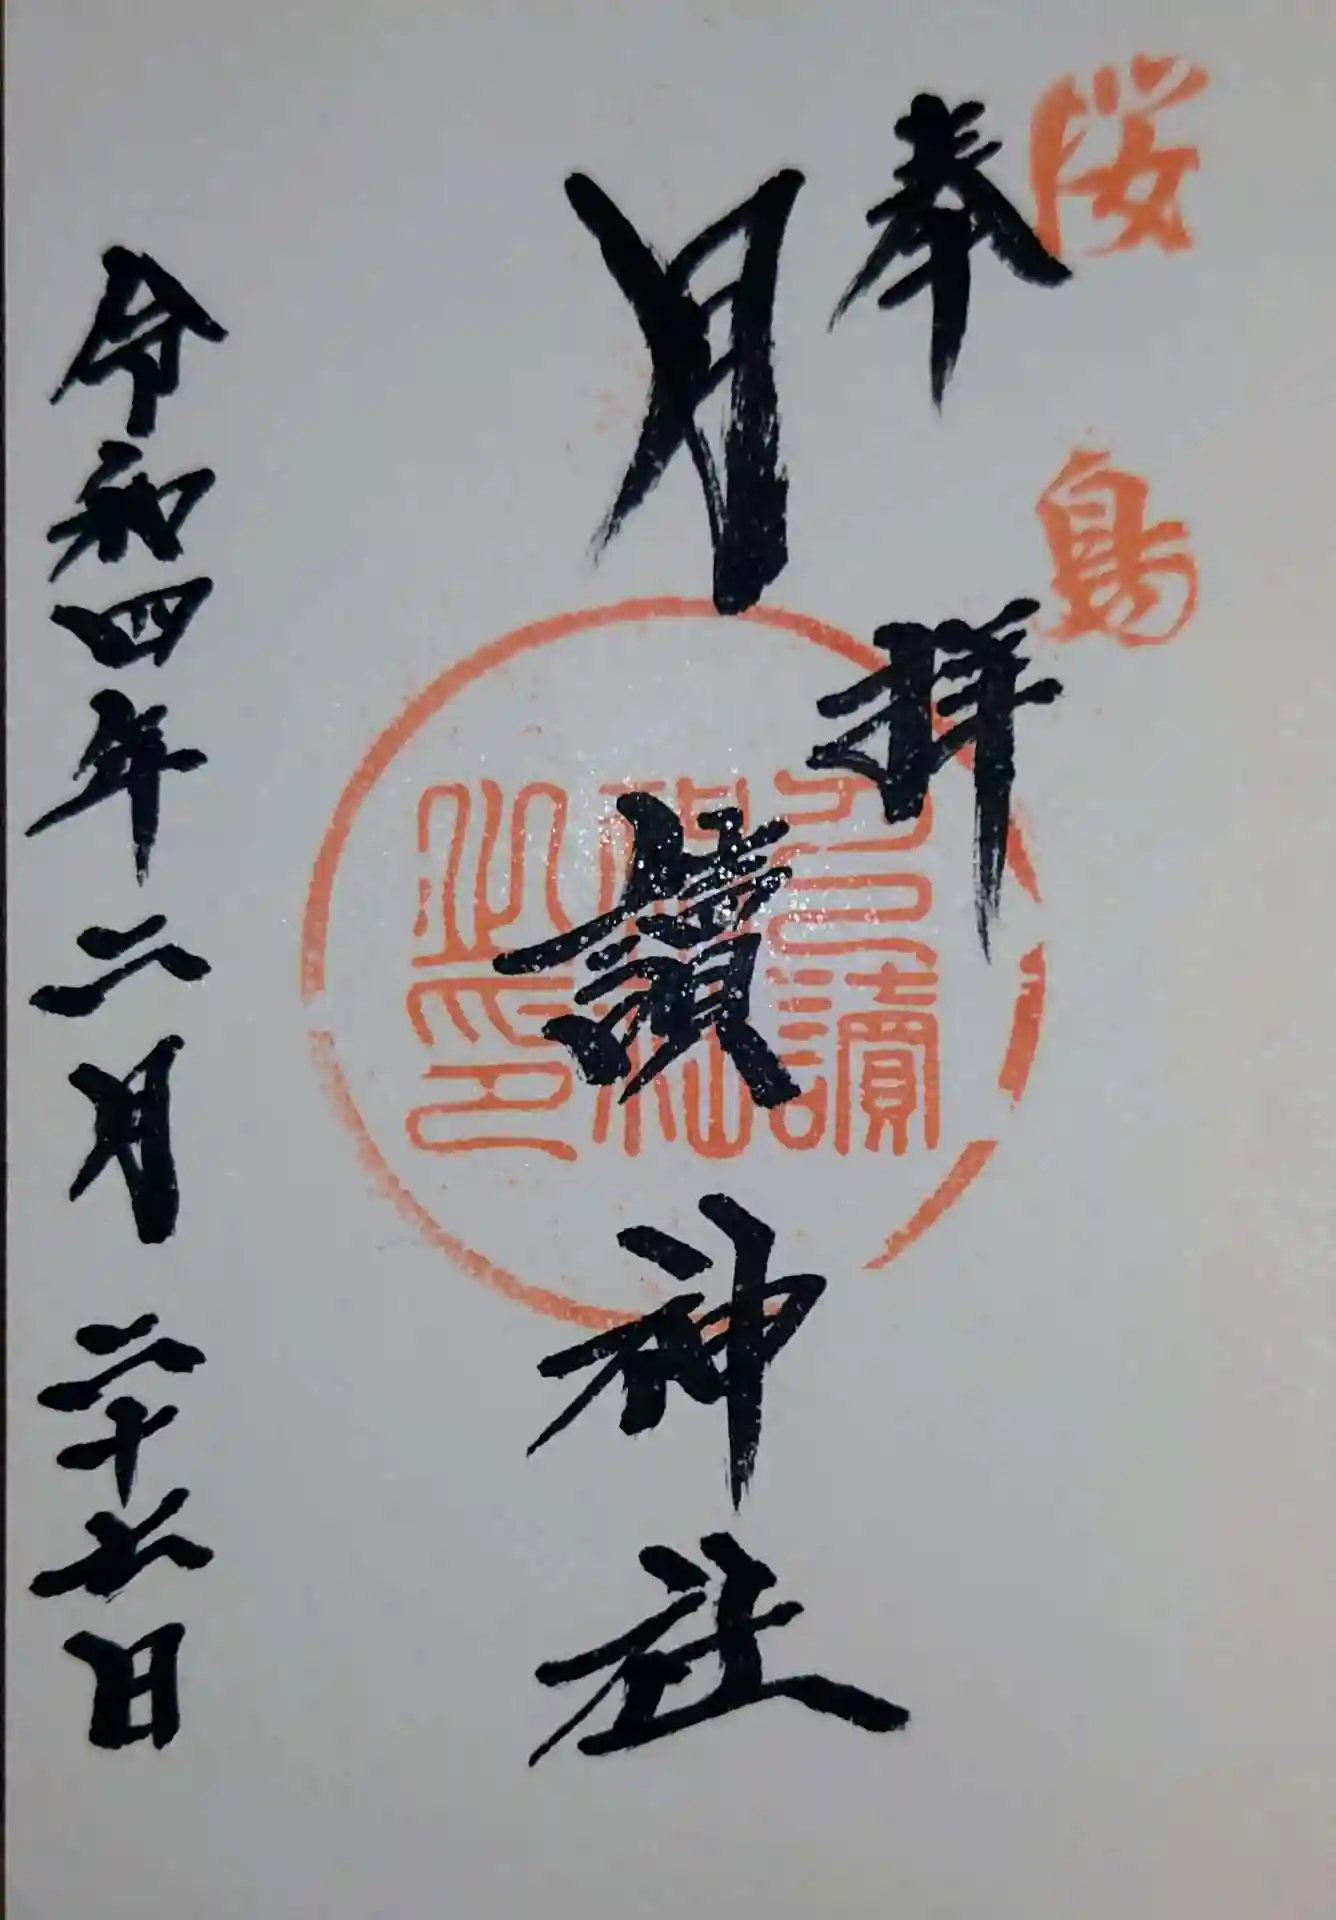 桜島
奉拝
月讀神社
月讀神社之印
令和四年二月二十七日